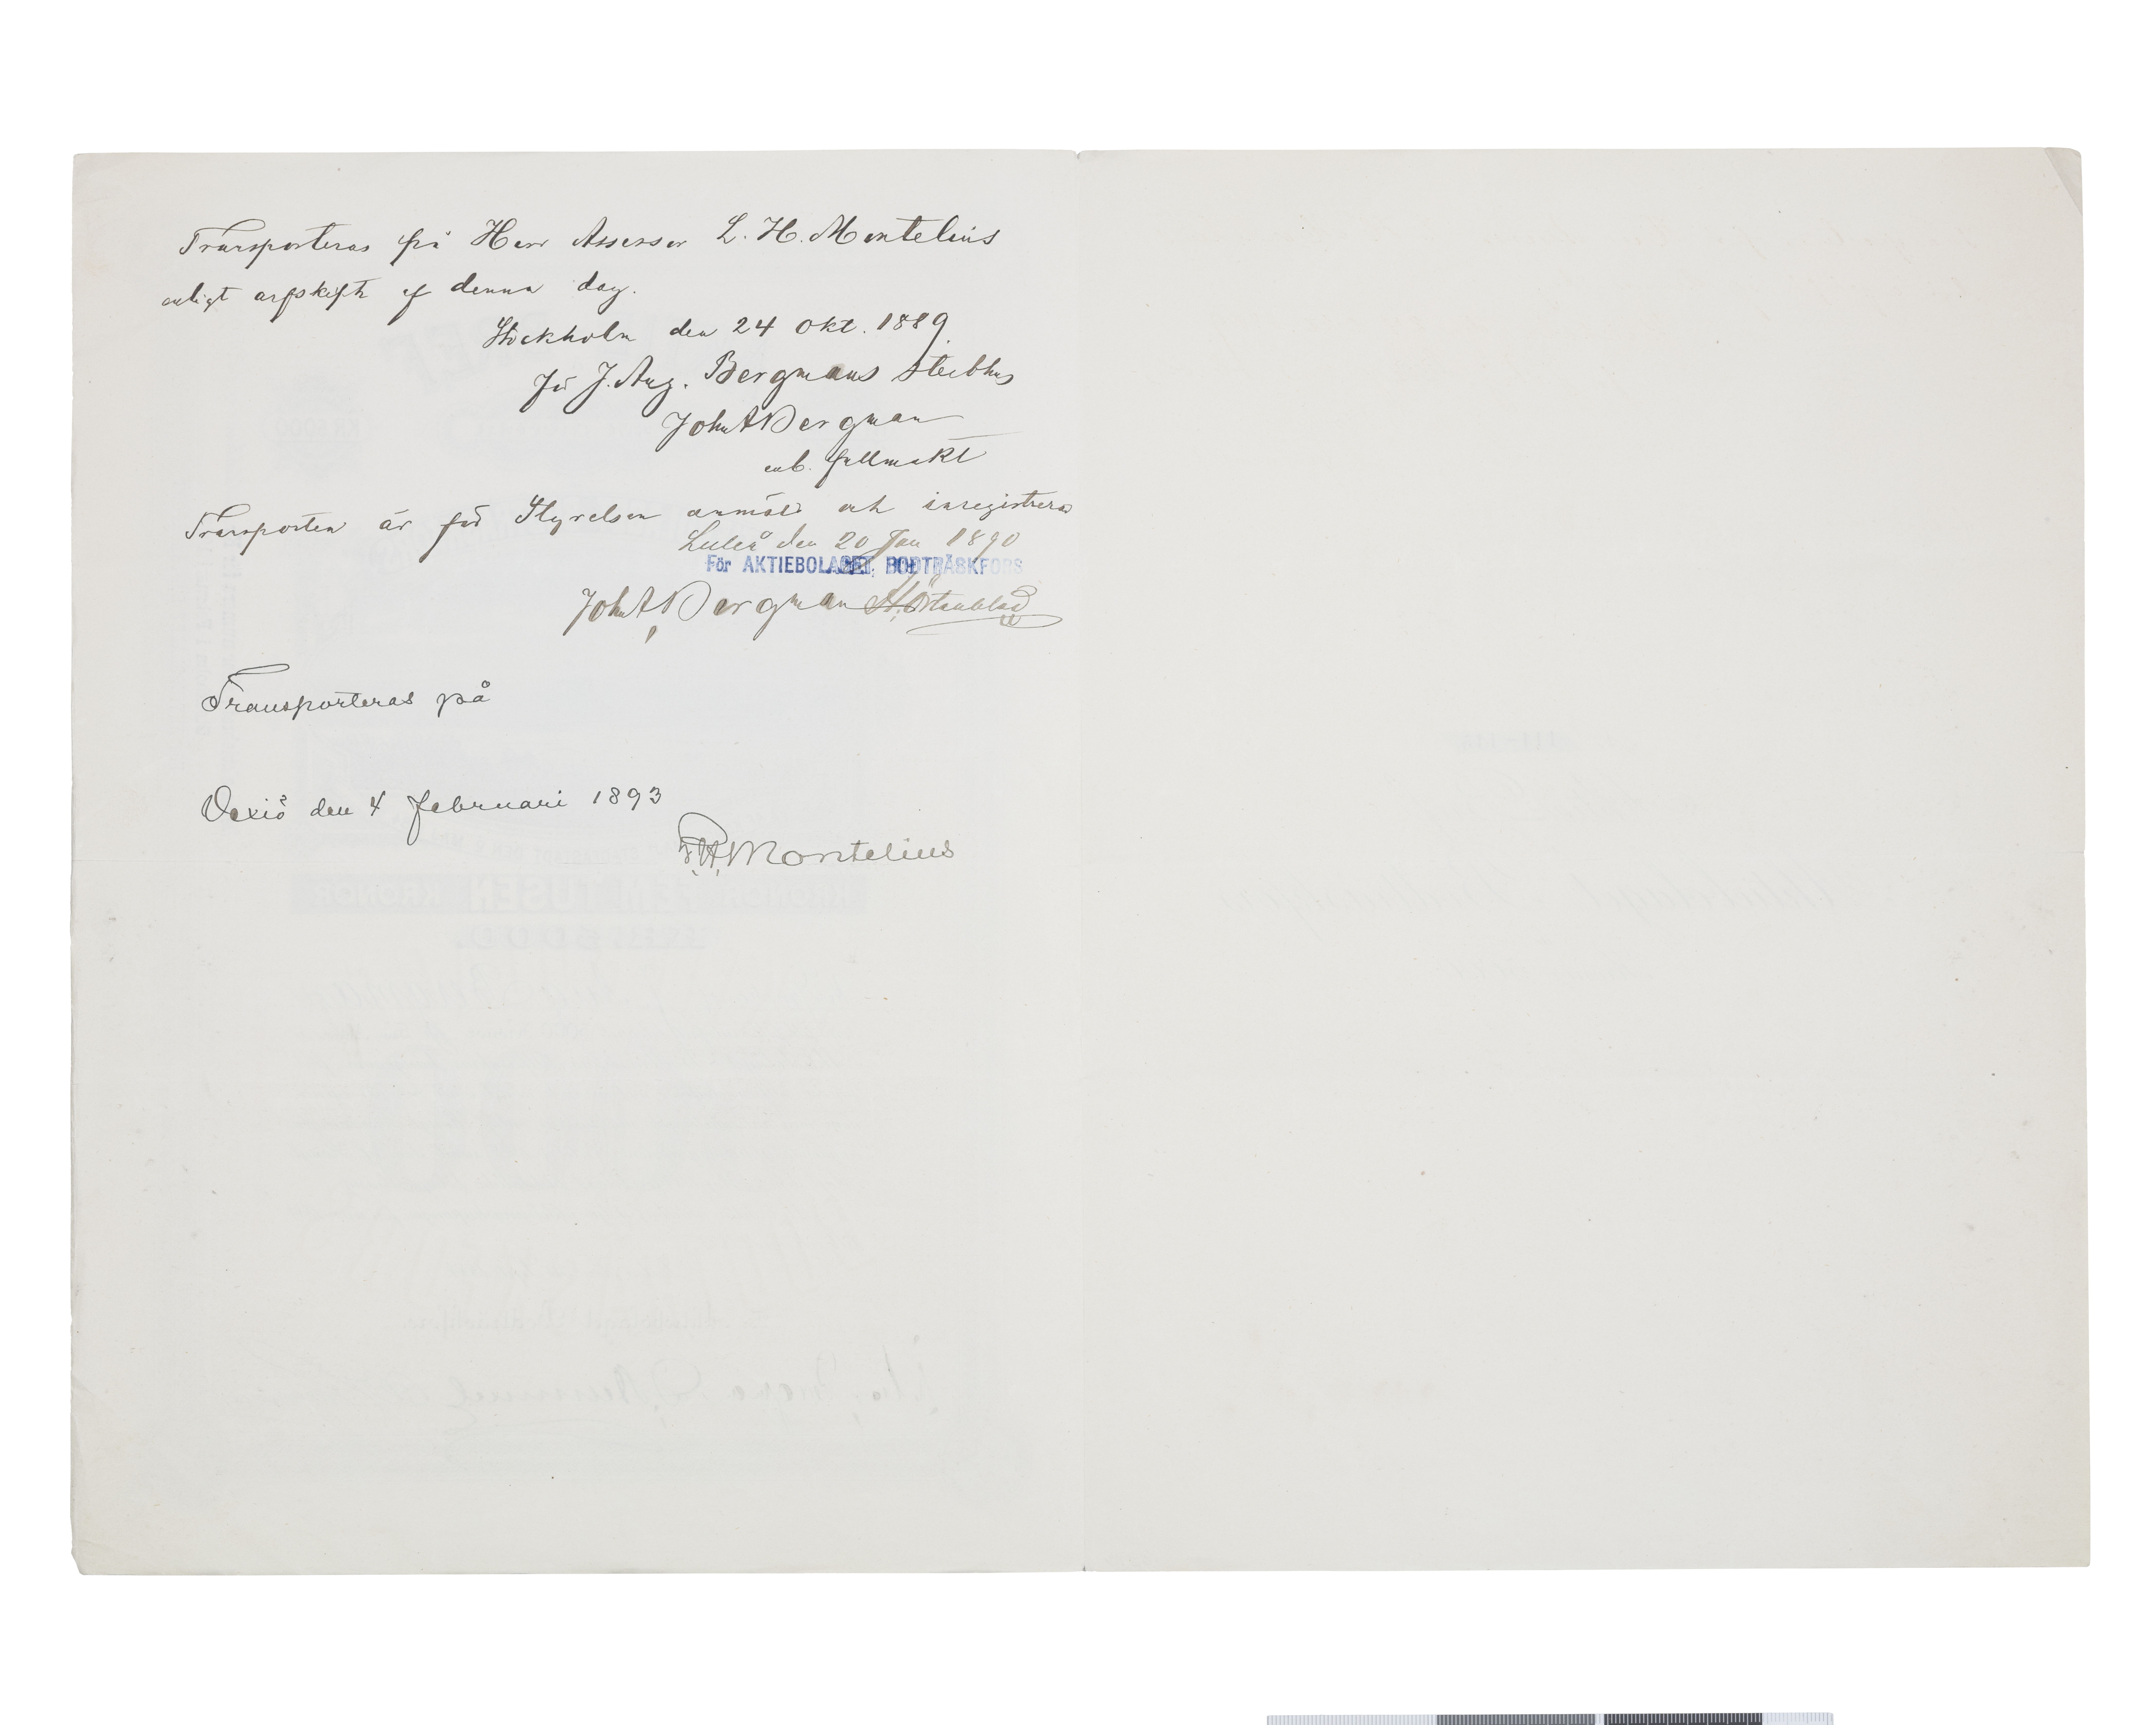 Transporteras på Herr Assessor L. H. Montelius
enligt arfskifte af denna dag.
Stockholm den 24 Okt. 1889.
för J. Aug. Bergmans sterbhus
John A Bergman
enl. fullmakt
Transporten är för Styrelsen anmäld och inregistrerad
Luleå den 20 Jan 1890
För AKTIEBOLAGET BODTRÄSKFORS
John A Bergman
Transporteras på
Vexiö den 4 februari 1893
Montelius